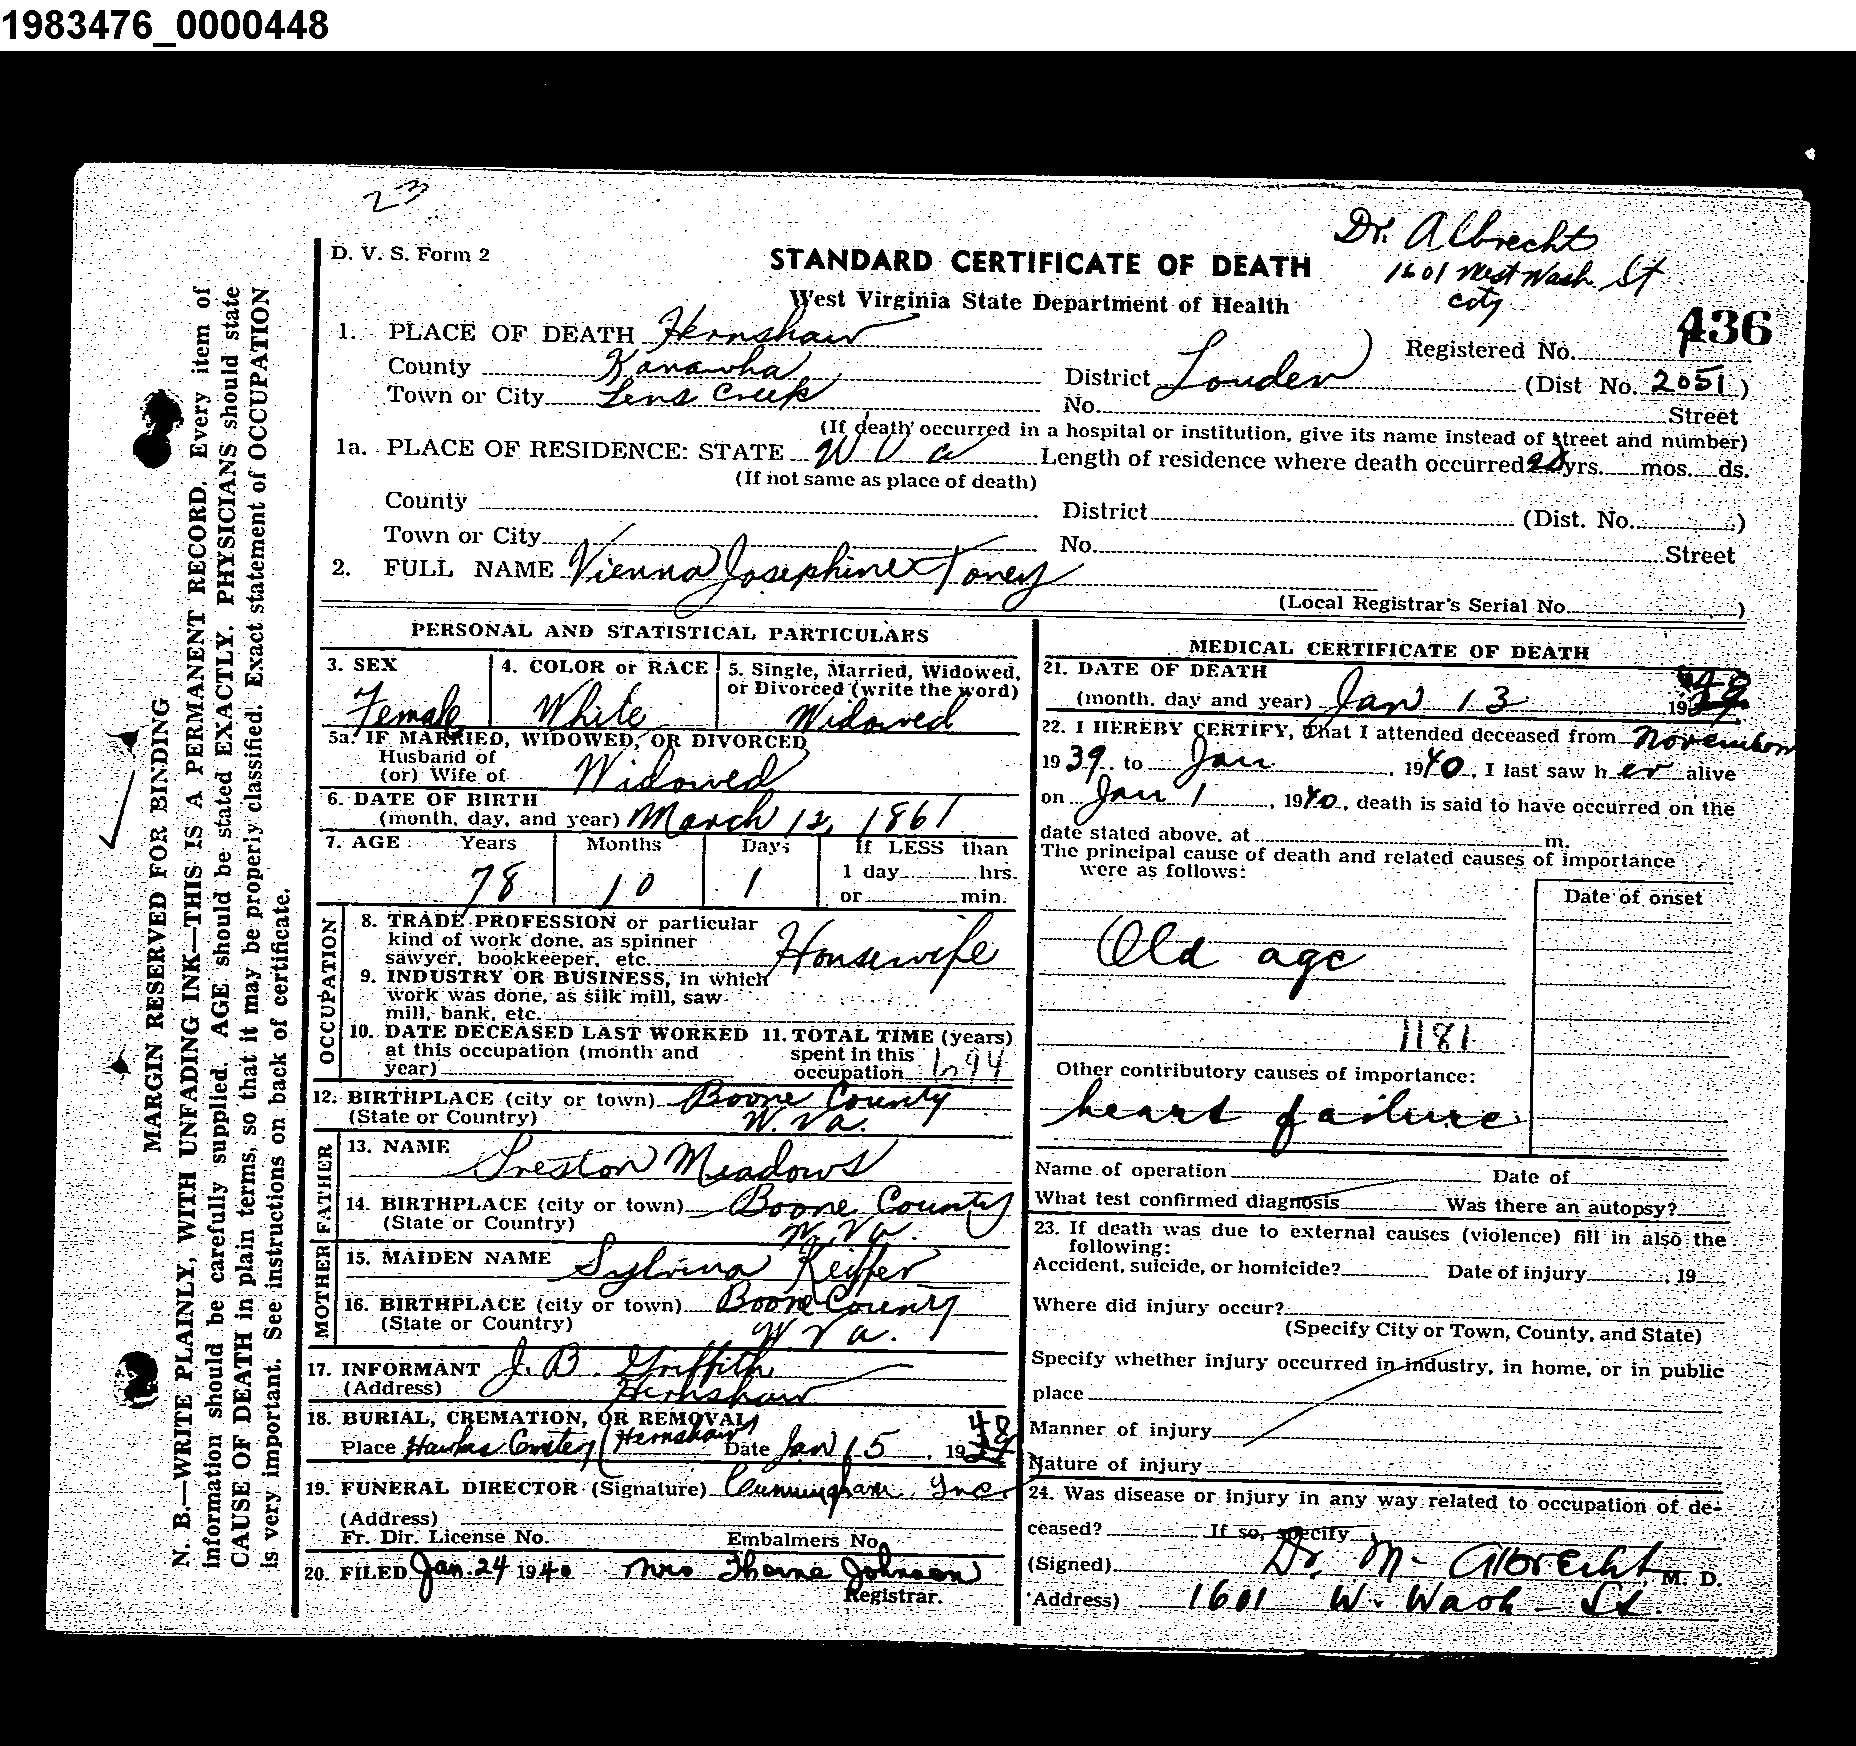 1983476_0000448
23
Dr. Albrecht
1601 West Wash. St
city
D. V. S. Form 2
STANDARD CERTIFICATE OF DEATH
West Virginia State Department of Health
436
1. PLACE OF DEATH Hernshaw
Registered No.
County Kanawha
District Louden (Dist No. 2051)
Town or City Lens Creek
No. Street
(If death occurred in a hospital or institution, give its name instead of street and number)
1a. PLACE OF RESIDENCE: STATE W Va Length of residence where death occurred yrs. mos. ds.
(If not same as place of death)
County District (Dist. No. )
Town or City No. Street
2. FULL NAME Vienna Josephine Toney
(Local Registrar's Serial No. )
PERSONAL AND STATISTICAL PARTICULARS
3. SEX 4. COLOR or RACE 5. Single, Married, Widowed, or Divorced (write the word)
Female White Widowed
5a. IF MARRIED, WIDOWED, OR DIVORCED
Husband of
(or) Wife of Widowed
6. DATE OF BIRTH
(month, day, and year) March 12, 1861
7. AGE Years Months Days If LESS than
78 10 1 1 day hrs.
or min.
OCCUPATION
8. TRADE PROFESSION or particular
kind of work done, as spinner
sawyer, bookkeeper, etc. Housewife
9. INDUSTRY OR BUSINESS, in which
work was done, as silk mill, saw
mill, bank, etc.
10. DATE DECEASED LAST WORKED 11. TOTAL TIME (years)
at this occupation (month and spent in this
year) occupation
12. BIRTHPLACE (city or town) Boone County
(State or Country) W. Va.
FATHER
13. NAME Preston Meadows
14. BIRTHPLACE (city or town) Boone County
(State or Country) W. Va.
MOTHER
15. MAIDEN NAME Sylvina Keiffer
16. BIRTHPLACE (city or town) Boone County
(State or Country) W Va.
17. INFORMANT J. B. Griffith
(Address) Hernshaw
18. BURIAL, CREMATION, OR REMOVAL
Place (Hernshaw) Date Jan 15, 19
19. FUNERAL DIRECTOR (Signature) Cunningham, Inc.
(Address)
Fr. Dir. License No. Embalmers No.
20. FILED Jan. 24 1940 Mrs Johnson
Registrar.
MEDICAL CERTIFICATE OF DEATH
21. DATE OF DEATH
(month, day and year) Jan 13 19
22. I HEREBY CERTIFY, that I attended deceased from November
1939. to Jan, 1940, I last saw her alive
on Jan 1, 1940, death is said to have occurred on the
date stated above, at m.
The principal cause of death and related causes of importance
were as follows:
Date of onset
Old age
1181
Other contributory causes of importance:
heart failure
Name of operation Date of
What test confirmed diagnosis Was there an autopsy?
23. If death was due to external causes (violence) fill in also the
following:
Accident, suicide, or homicide? Date of injury , 19
Where did injury occur?
(Specify City or Town, County, and State)
Specify whether injury occurred in industry, in home, or in public
place
Manner of injury
Nature of injury
24. Was disease or injury in any way related to occupation of de-
ceased? If so, specify
(Signed) Dr. M. Albrecht M. D.
Address) 1601 W. Wash - St.
MARGIN RESERVED FOR BINDING
N. B.—WRITE PLAINLY, WITH UNFADING INK—THIS IS A PERMANENT RECORD. Every item of
information should be carefully supplied. AGE should be stated EXACTLY. PHYSICIANS should state
CAUSE OF DEATH in plain terms, so that it may be properly classified. Exact statement of OCCUPATION
is very important. See instructions on back of certificate.